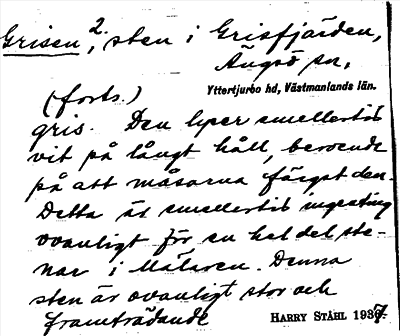 Grisen 2, sten i Grisfjärden,
Ängsö sn,
Yttertjurbo hd, Västmanlands län.
(forts.)
gris. Den lyser emellertid
vit på långt håll, beroende
på att måsarna färgat den.
Detta är emellertid ingenting
ovanligt för en hel del ste-
nar i Mälaren. Denna
sten är ovanligt stor och
framträdande
HARRY STÅHL 1937.